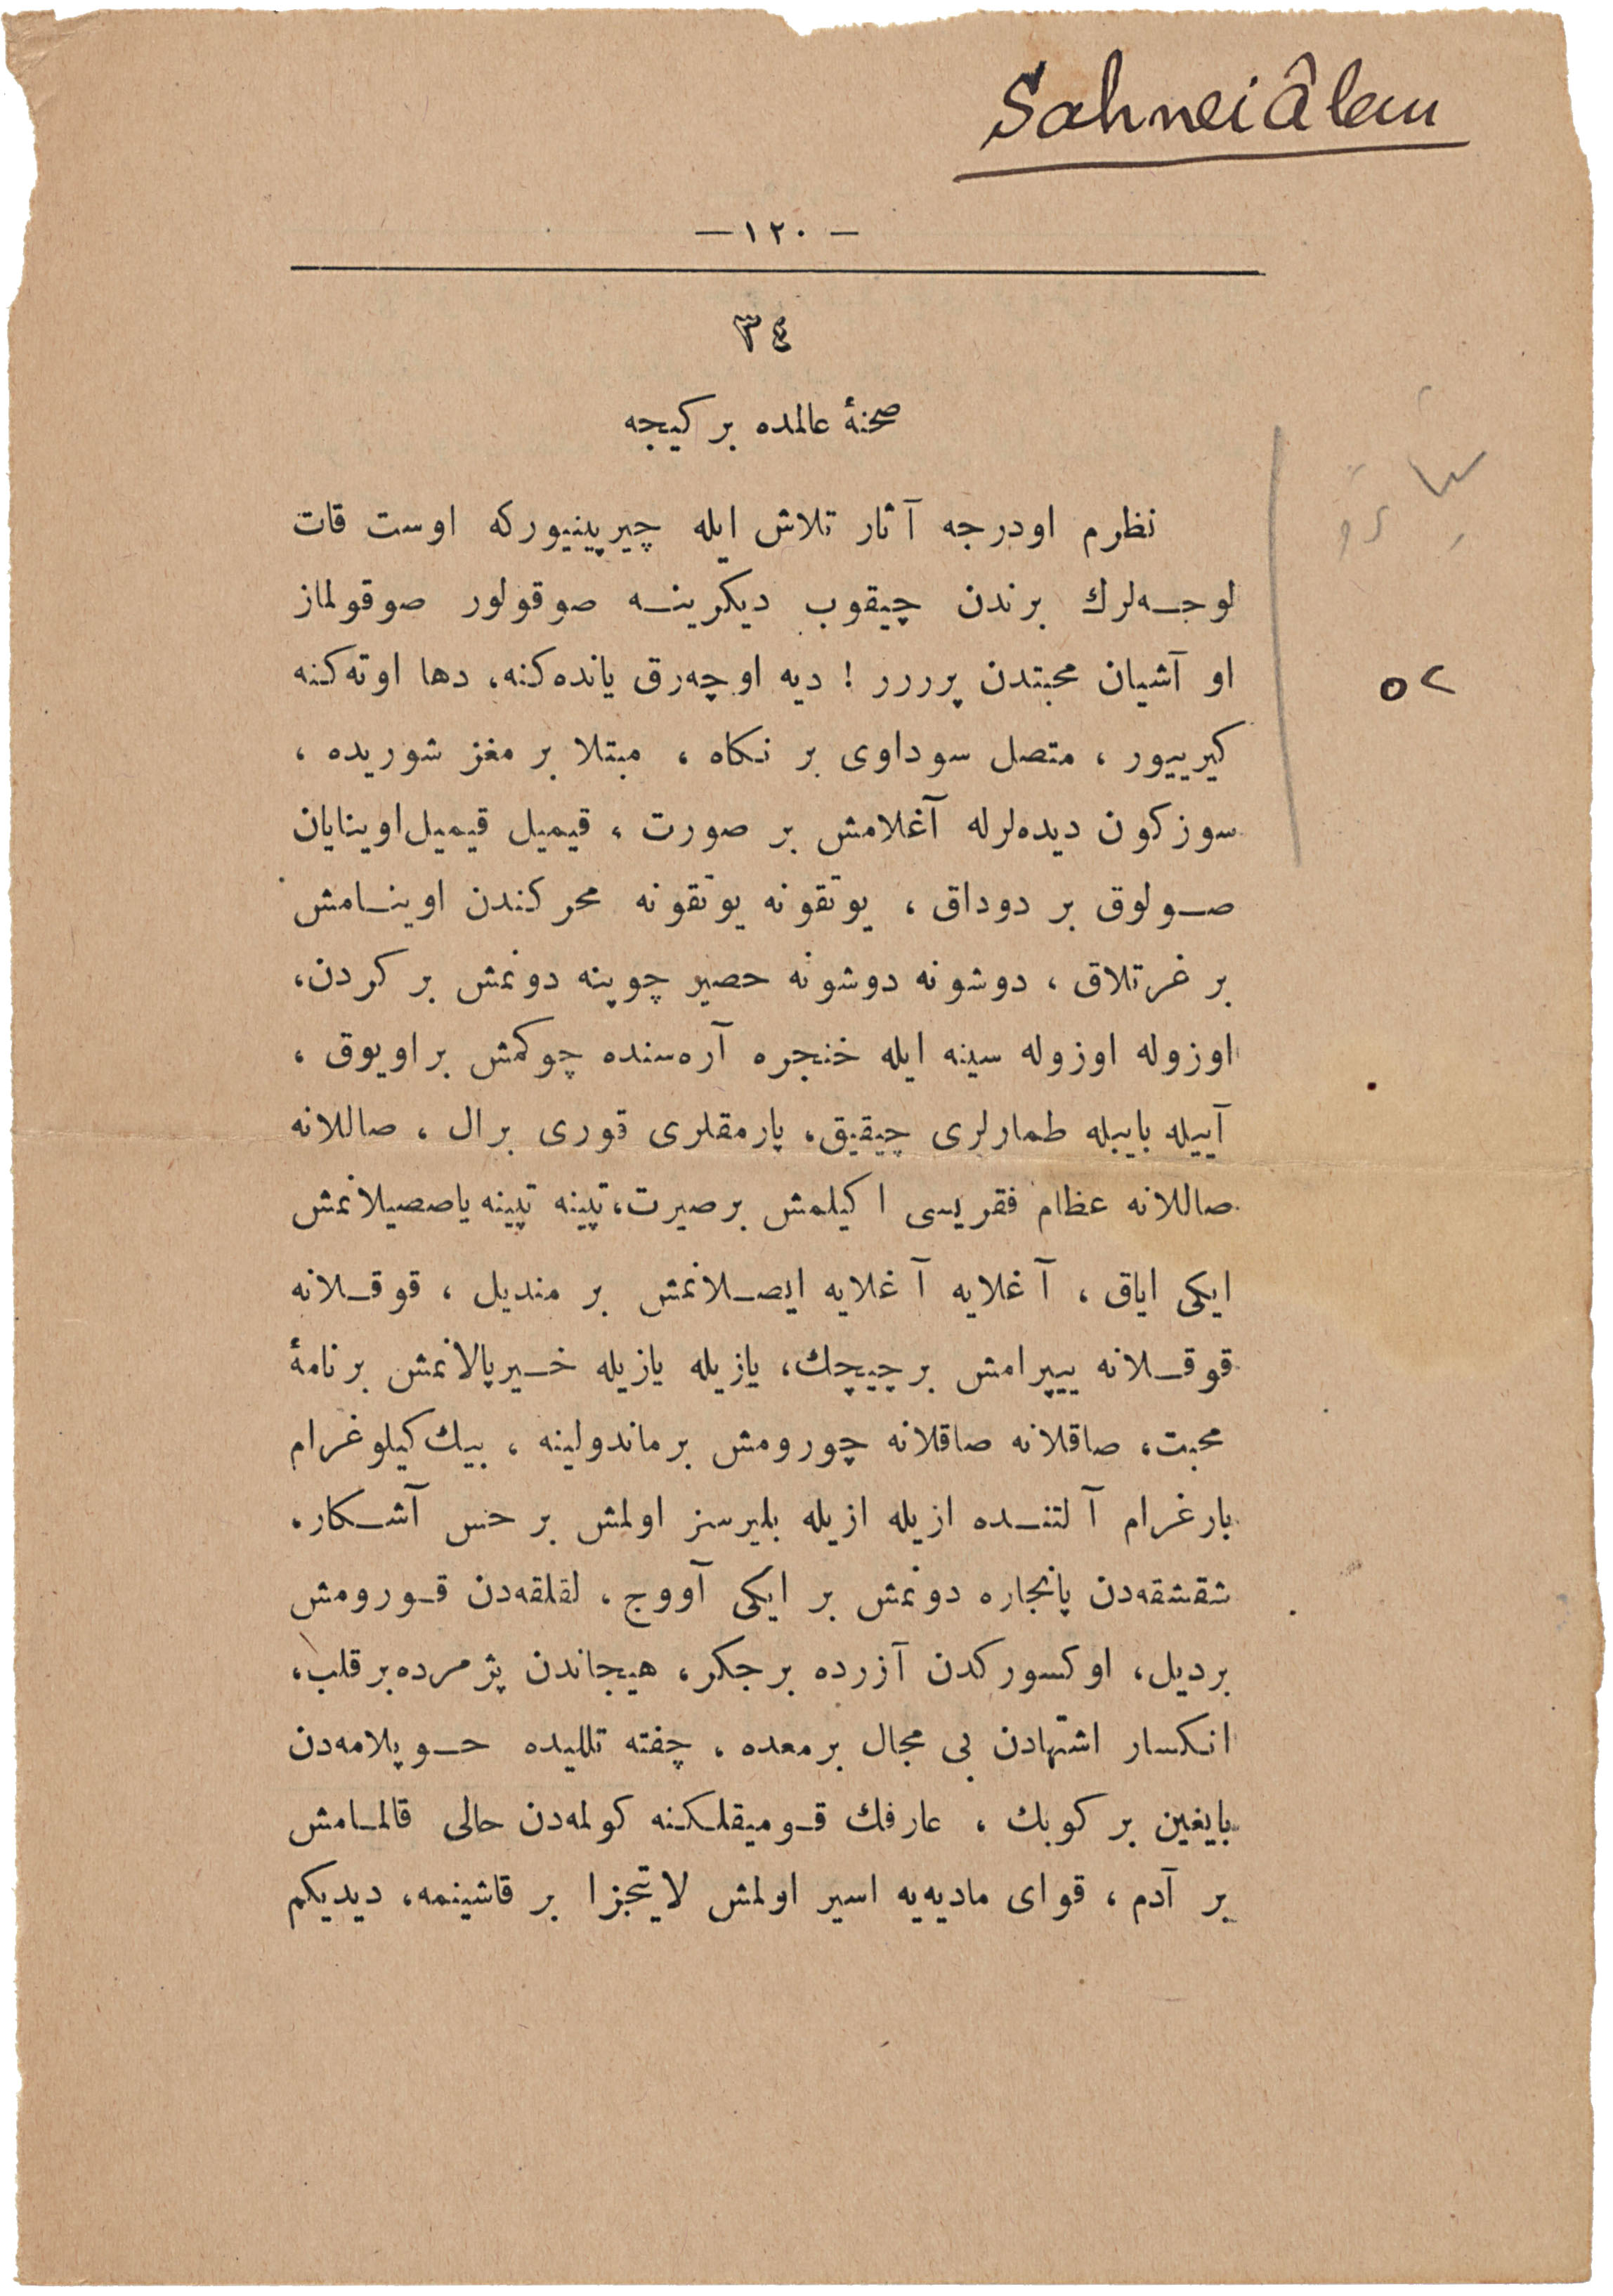 Sahneiâlem
— ١٢٠ —
٣٤
صحنهٔ عالمده بر كیجه
نظرم اودرجه آثار تلاش ایله چیرپینیورکه اوست قات
لوجه‌لرك برندن چیقوب دیكرینه صوقولور صوقولماز
او آشیان محبتدن پرررر ! دیه اوچه‌رق یانده‌كنه، دها اوته‌كنه
كیرییور ، متصل سوداوی بر نكاه ، مبتلا بر مغز شوریده ،
سوزكون دیده‌لرله آغلامش بر صورت ، قیمیل قیمیل اوینایان
صولوق بر دوداق ، یوتقونه یوتقونه محركندن اوینامش
بر غرتلاق ، دوشونه دوشونه حصیر چوپنه دونمش بر كردن،
اوزوله اوزوله سینه ایله خنجره آره‌سنده چوكمش بر اویوق ،
آییله باییله طمارلری چیقیق، پارمقلری قوری برال ، صاللانه
صاللانه عظام فقریسی اكیلمش برصیرت، تپینه تپینه یاصصیلانمش
ایكی ایاق ، آغلایه آغلایه ایصلانمش بر مندیل ، قوقلانه
قوقلانه ییپرامش برچیچك، یازیله یازیله خیرپالانمش برنامهٔ
محبت، صاقلانه صاقلانه چورومش برماندولینه ، بیك كیلوغرام
بارغرام آلتنده ازیله ازیله بلیرسز اولمش بر حس آشكار،
شقشقه‌دن پانجاره دونمش بر ایكی آووج ، لقلقه‌دن قورومش
بردیل، اوكسوركدن آزرده برجكر، هیجاندن پژمرده‌برقلب،
انكسار اشتهادن بی مجال برمعده ، چفته تللیده حوپلامه‌دن
بایغین بر كوبك ، عارفك قومیقلكنه كولمه‌دن حالی قالمامش
بر آدم ، قوای مادیه‌یه اسیر اولمش لایتجزا بر قاشینمه، دیدیكم